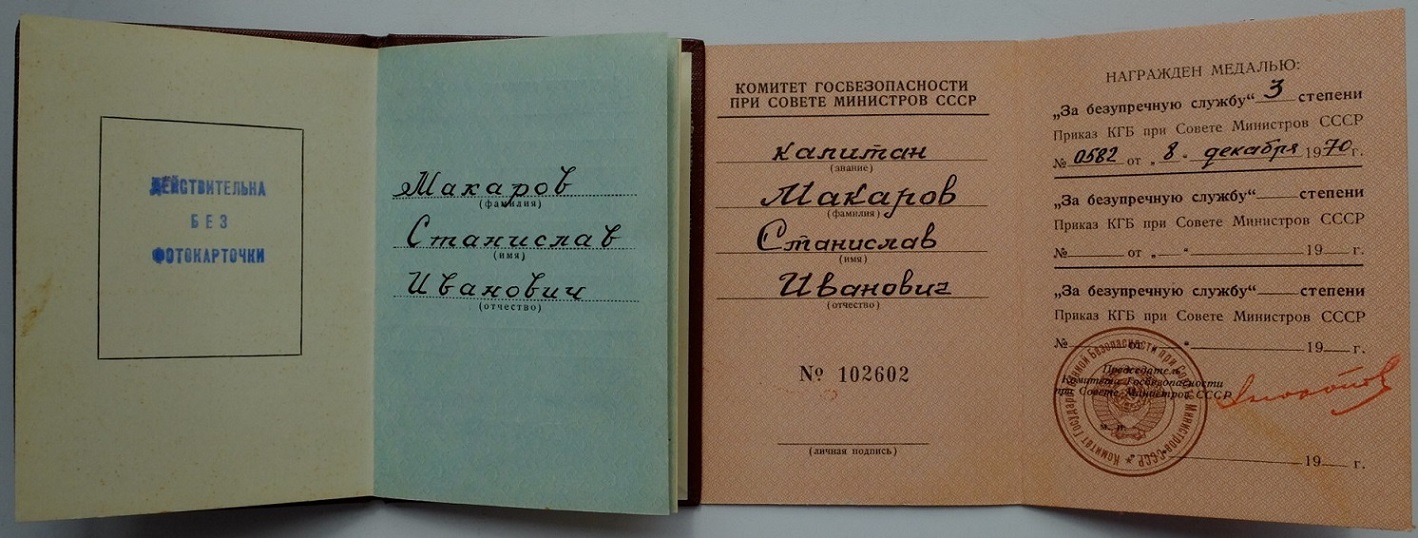 ДЕЙСТВИТЕЛЬНА
БЕЗ
ФОТОКАРТОЧКИ
Макаров
(фамилия)
Станислав
(имя)
Иванович
(отчество)
КОМИТЕТ ГОСБЕЗОПАСНОСТИ
ПРИ СОВЕТЕ МИНИСТРОВ СССР
капитан
(звание)
Макаров
(фамилия)
Станислав
(имя)
Иванович
(отчество)
№ 102602
(личная подпись)
НАГРАЖДЕН МЕДАЛЬЮ:
„За безупречную службу“ 3 степени
Приказ КГБ при Совете Министров СССР
№ 0582 от „ 8 “ декабря 1970 г.
„За безупречную службу“ степени
Приказ КГБ при Совете Министров СССР
№ от „ “ 19 г.
„За безупречную службу“ степени
Приказ КГБ при Совете Министров СССР
№ от „ “ 19 г.
Председатель
Комитета Госбезопасности
при Совете Министров СССР
м. п.
Комитет Государственной Безопасности при Совете Министров СССР
„ “ 19 г.